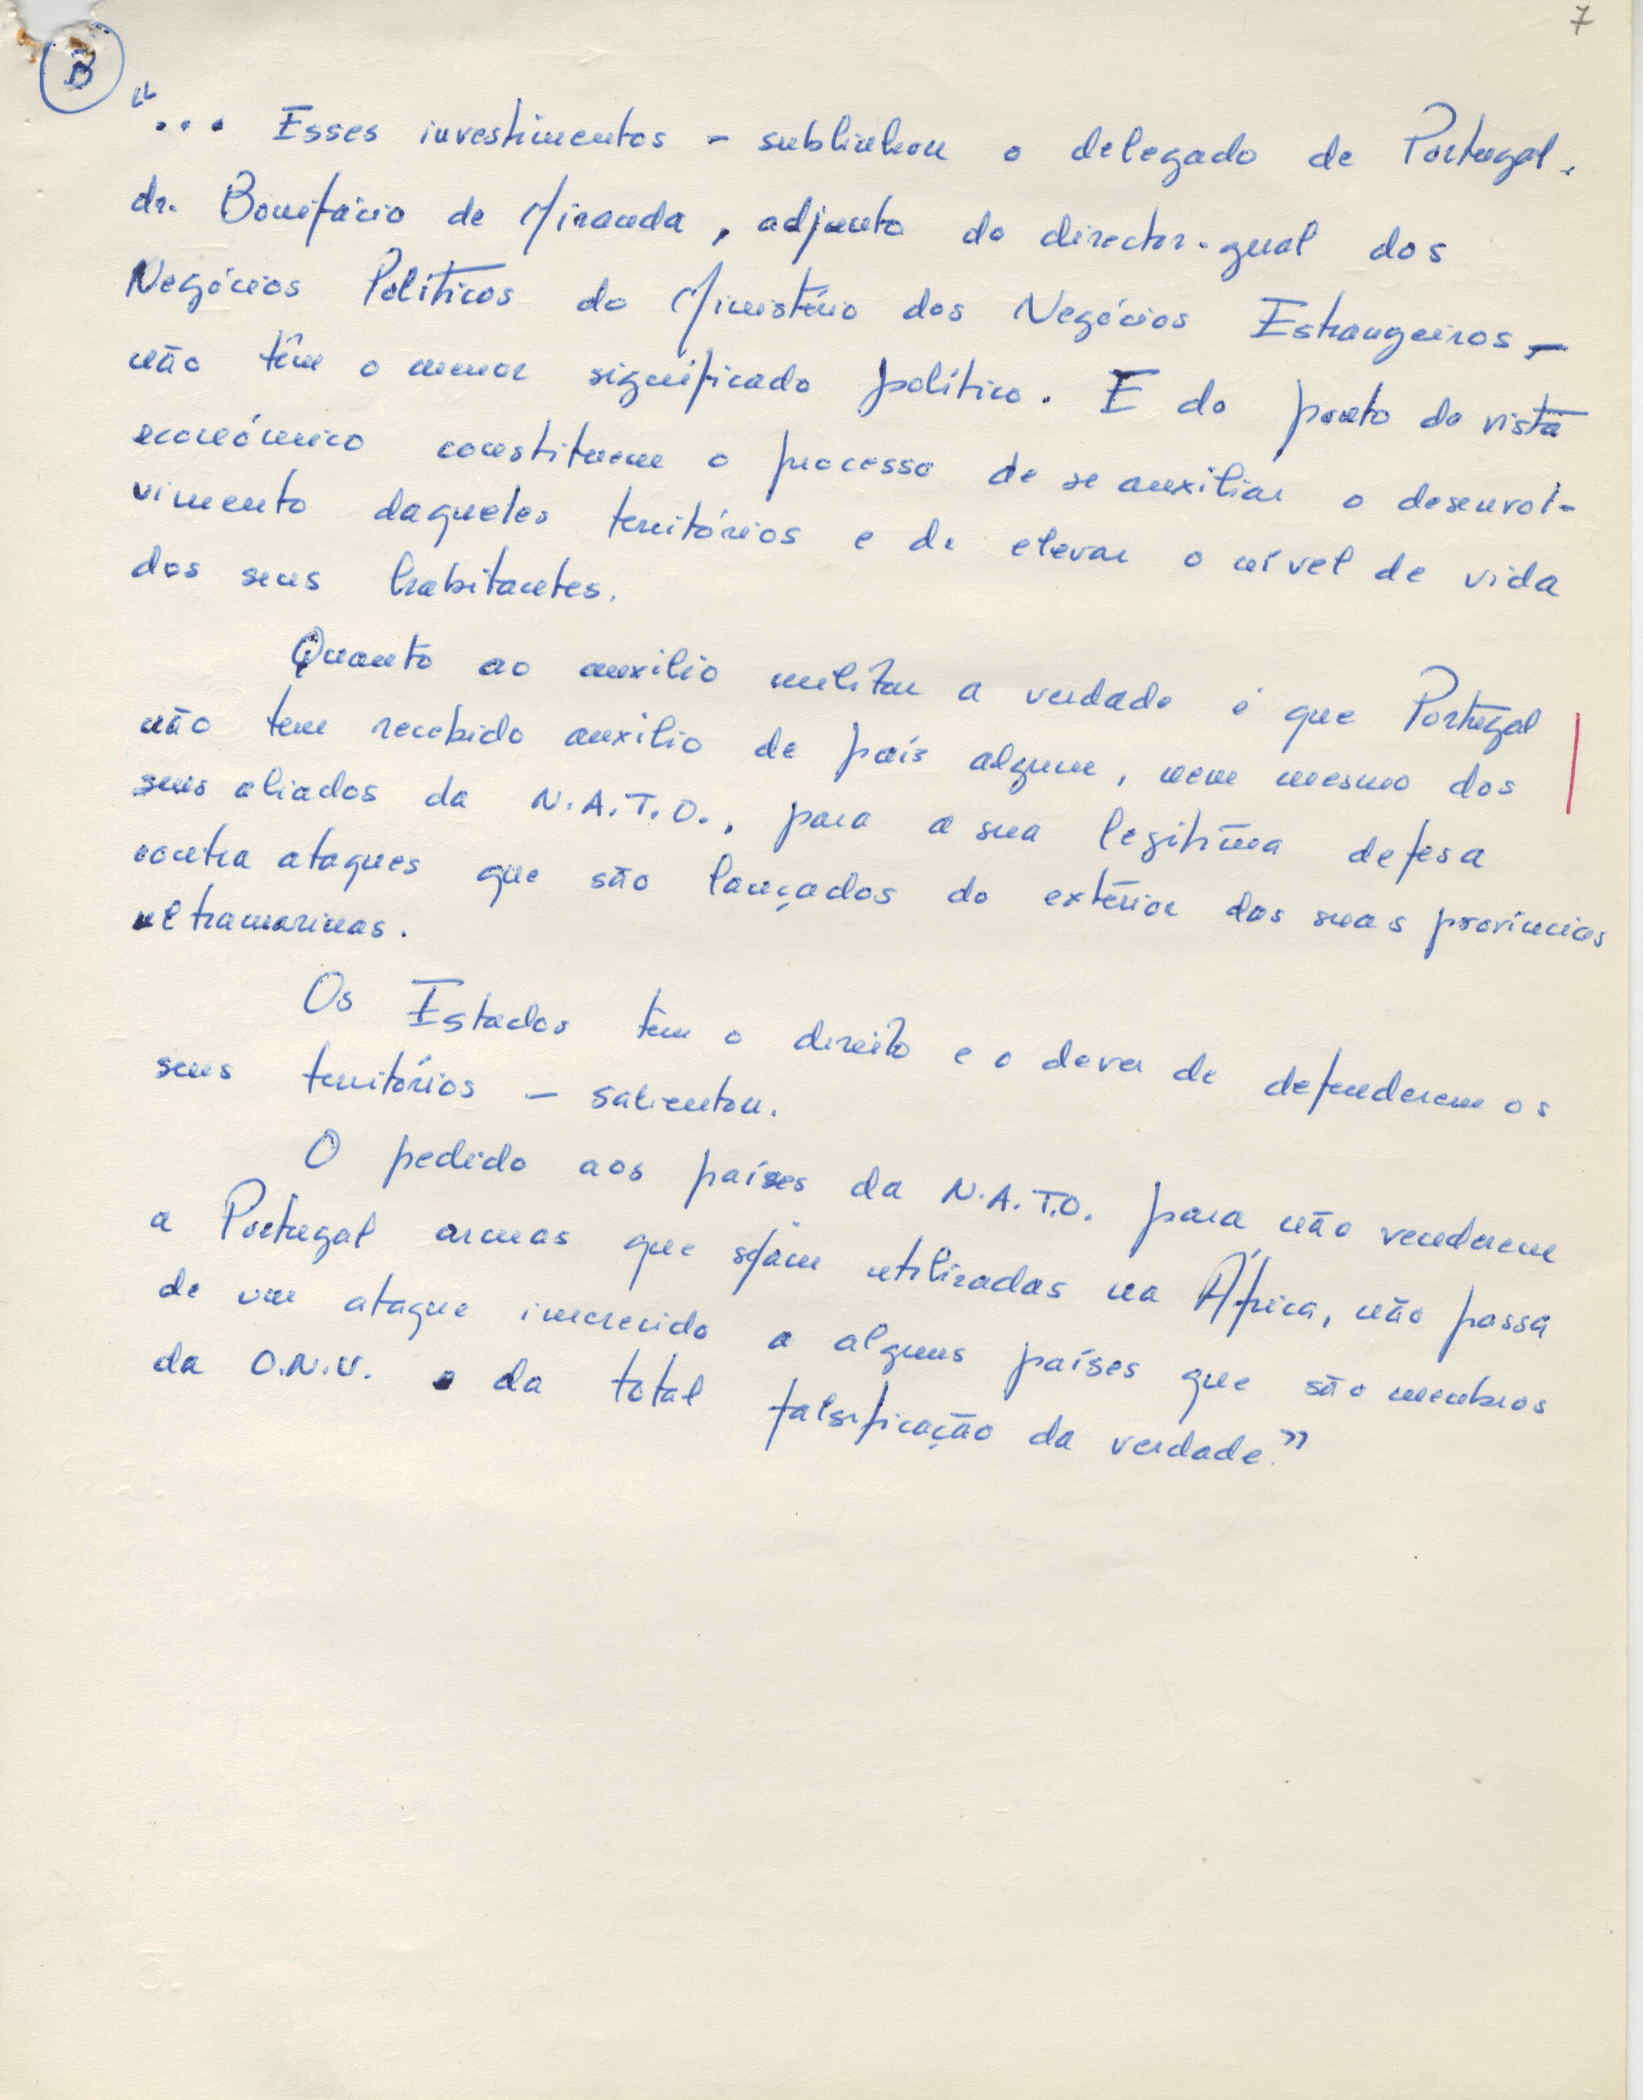 7
B
"... Esses investimentos - sublinhou o delegado de Portugal,
dr. Bonifácio de Miranda, adjunto do director-geral dos
Negócios Políticos do Ministério dos Negócios Estrangeiros -
não têm o menor significado político. E do ponto de vista
económico constituem o processo de se auxiliar o desenvol-
vimento daqueles territórios e de elevar o nível de vida
dos seus habitantes.
Quanto ao auxílio militar a verdade é que Portugal
não tem recebido auxílio de país algum, nem mesmo dos
seus aliados da N.A.T.O., para a sua legítima defesa
contra ataques que são lançados do exterior das suas províncias
ultramarinas.
Os Estados tem o direito e o dever de defenderem os
seus territórios - salientou.
O pedido aos países da N.A.T.O. para não venderem
a Portugal armas que sejam utilizadas na África, não passa
de um ataque imerecido a alguns países que são membros
da O.N.U. e da total falsificação da verdade."